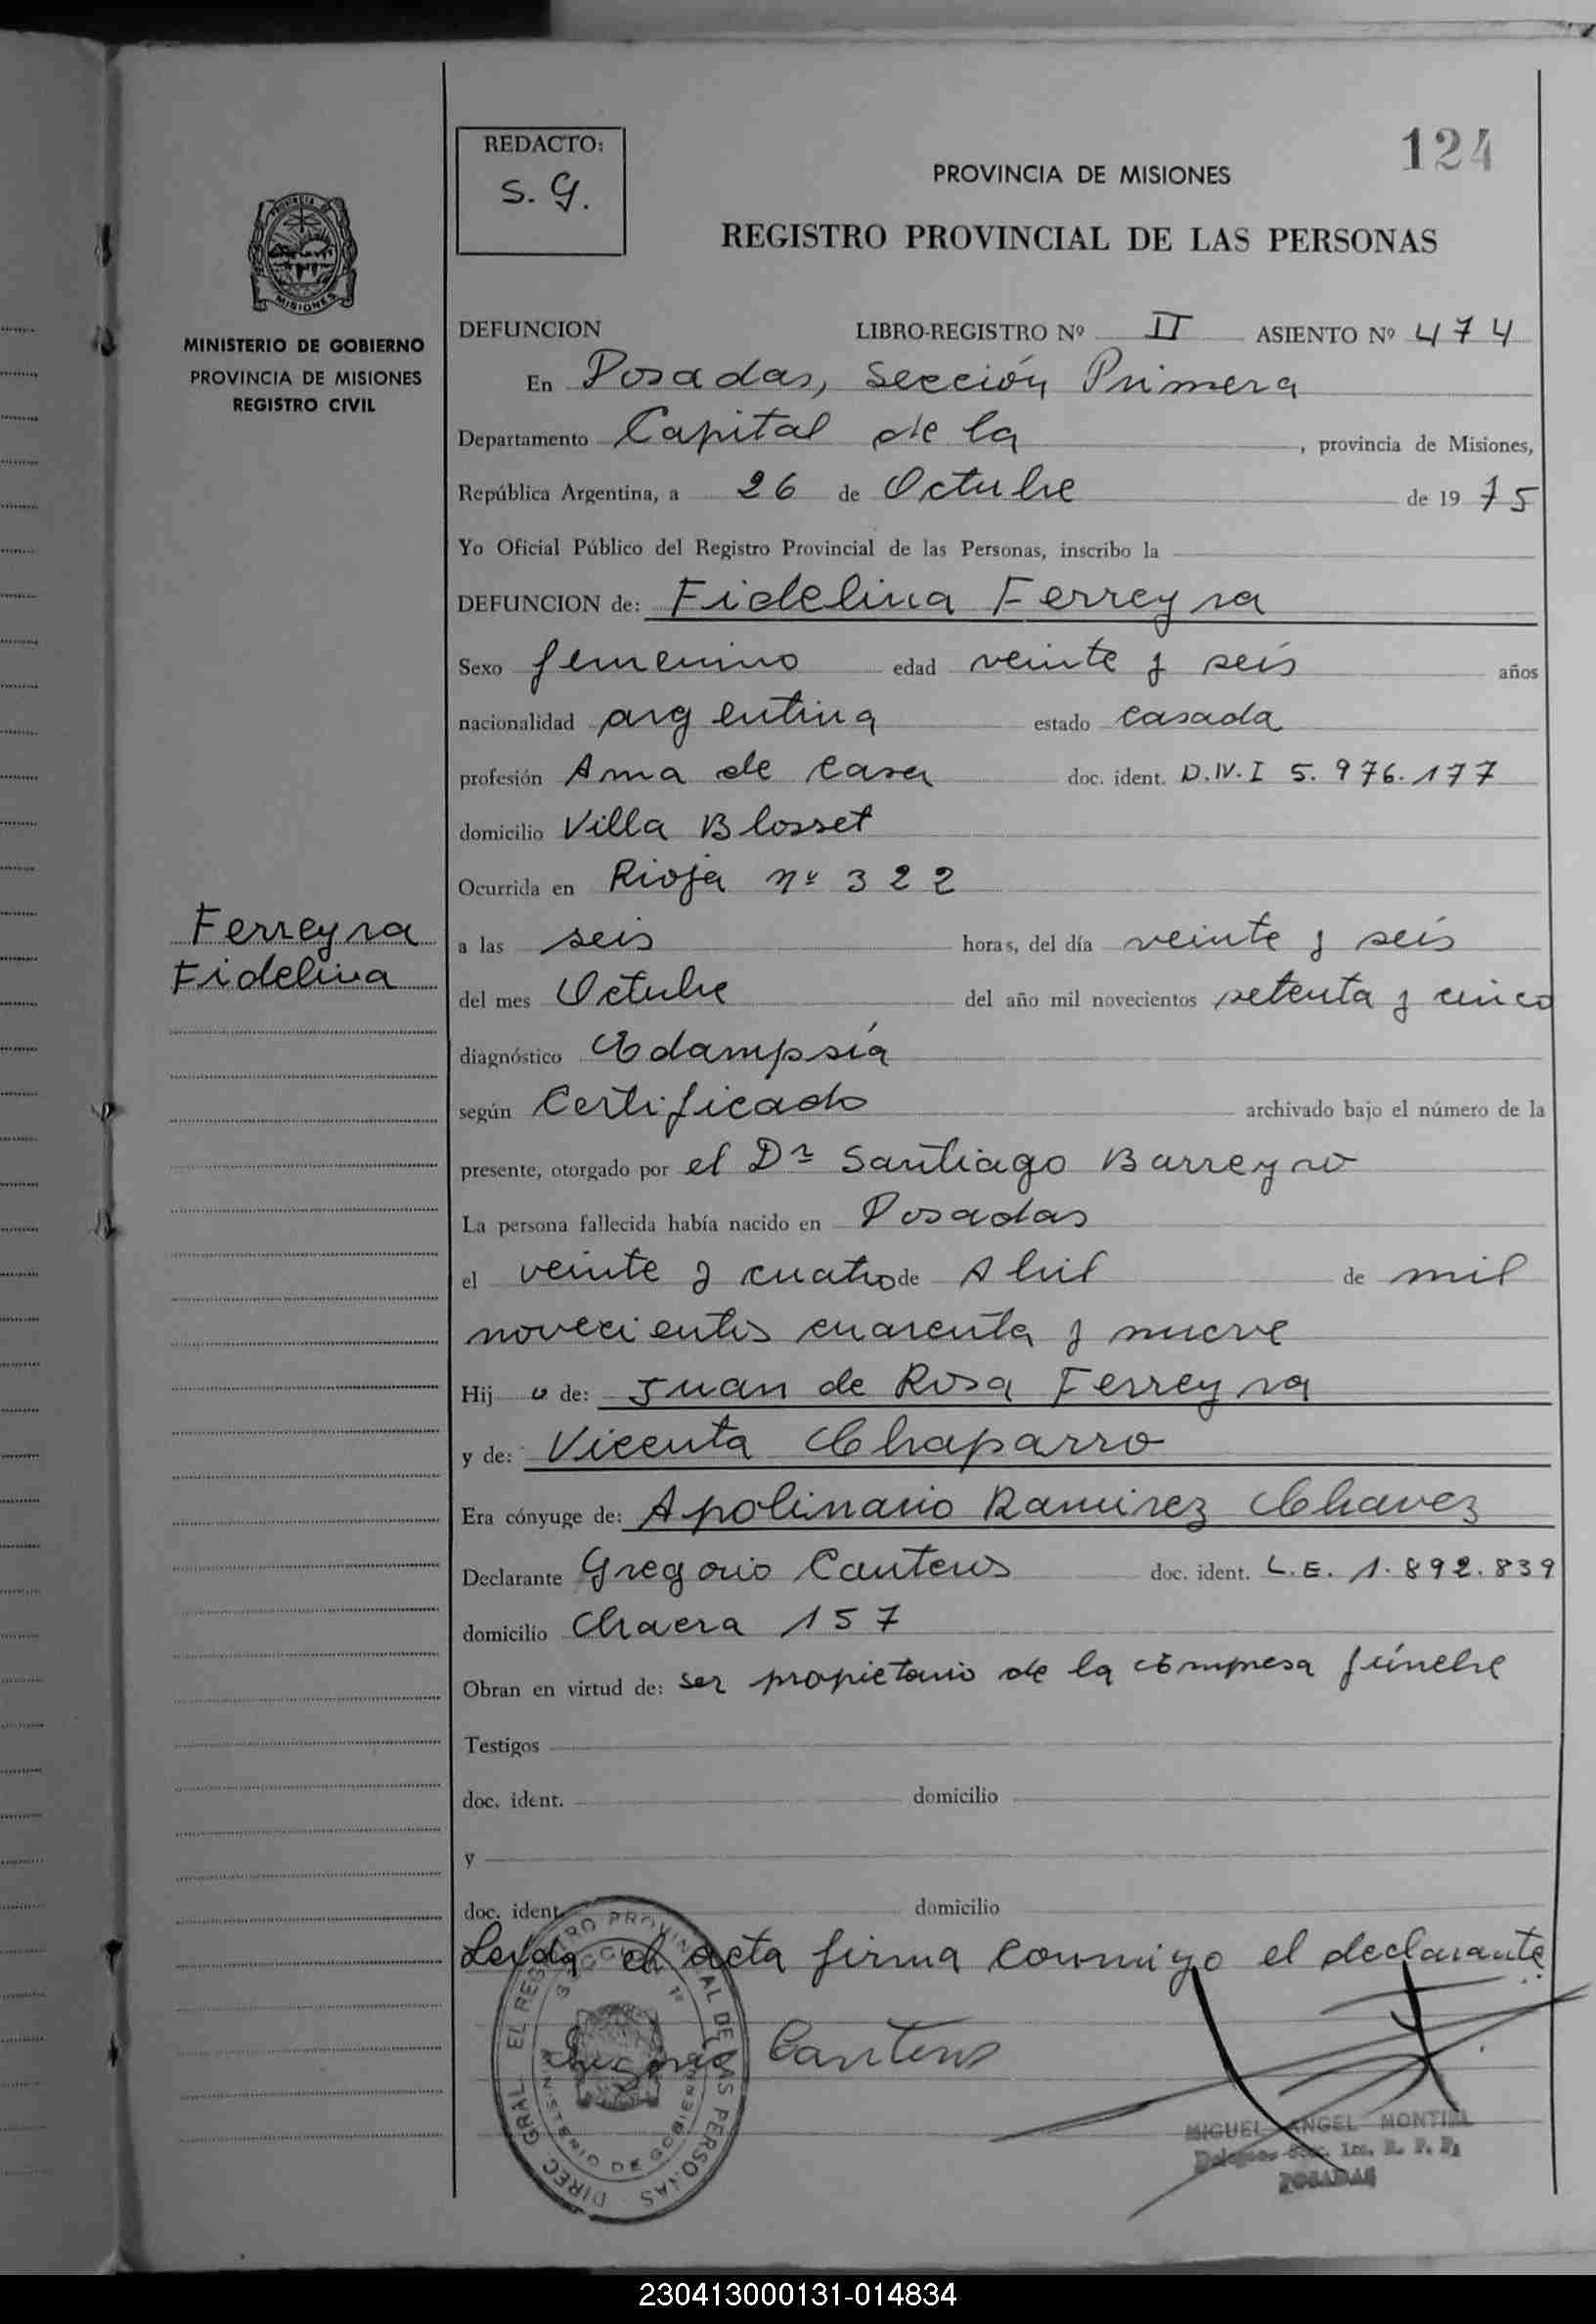 124
REDACTO:
S. G.
PROVINCIA DE MISIONES
REGISTRO PROVINCIAL DE LAS PERSONAS
MISIONES
MINISTERIO DE GOBIERNO
PROVINCIA DE MISIONES
REGISTRO CIVIL
Ferreyra
Fidelina
DEFUNCION LIBRO-REGISTRO Nº II ASIENTO Nº 474
En Posadas, Sección Primera
Departamento Capital de la, provincia de Misiones,
República Argentina, a 26 de Octubre de 1975
Yo Oficial Público del Registro Provincial de las Personas, inscribo la
DEFUNCION de: Fidelina Ferreyra
Sexo femenino edad veinte y seis años
nacionalidad argentina estado casada
profesión Ama de casa doc. ident. D.N.I 5.976.177
domicilio Villa Blosset
Ocurrida en Rioja nº 322
a las seis horas, del día veinte y seis
del mes Octubre del año mil novecientos setenta y cinco
diagnóstico Eclampsía
según Certificado archivado bajo el número de la
presente, otorgado por el Dr Santiago Barreyro
La persona fallecida había nacido en Posadas
el veinte y cuatro de Abril de mil
novecientos cuarenta y nueve
Hija de: Juan de Rosa Ferreyra
y de: Vicenta Chaparro
Era cónyuge de: Apolinario Ramirez Chavez
Declarante Gregorio Canteros doc. ident. L.E. 1.892.839
domicilio Chacra 157
Obran en virtud de: ser propietario de la empresa fúnebre
Testigos
doc. ident. domicilio
y
doc. ident. domicilio
Leída el acta firma conmigo el declarante
Gregorio Canteros
DIREC. GRAL. EL REGISTRO PROVINCIAL DE LAS PERSONAS
SECCION 1ª
MINISTERIO DE GOBIERNO
MIGUEL ANGEL MONTIEL
POSADAS
230413000131-014834